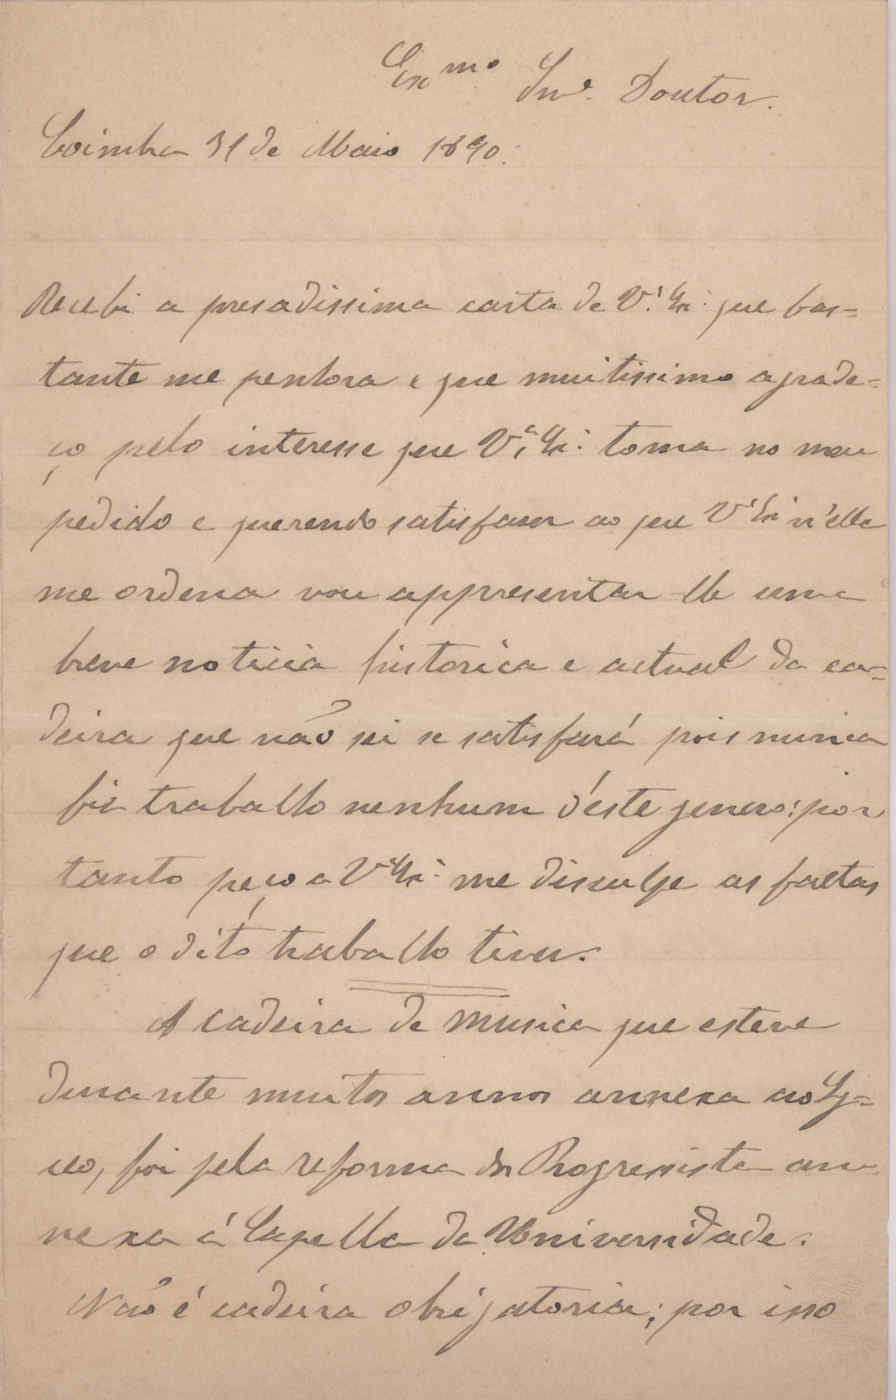 Ex.mo Snr. Doutor.
Coimbra 31 de Maio 1890.
Recebi a presadissima carta de V.ª Ex.ª que bas=
tante me penhora e que muitissimo agrade=
ço pelo interesse que V.ª Ex.ª toma no meu
pedido e querendo satisfazer ao que V.ª Ex.ª n'ella
me ordena vou appresentar lhe uma
breve noticia historica e actual da ca=
deira que não sei se satisfará pois nunca
fiz trabalho nenhum d'este genero: por
tanto peço a V.ª Ex.ª me disculpe as faltas
que o dito trabalho tiver.
A cadeira de Musica que esteve
durante muitos annos annexa ao Ly=
ceo, foi pela reforma do Progressista an
nexa á Capella da Universidade.
Não é cadeira obrigatoria; por isso